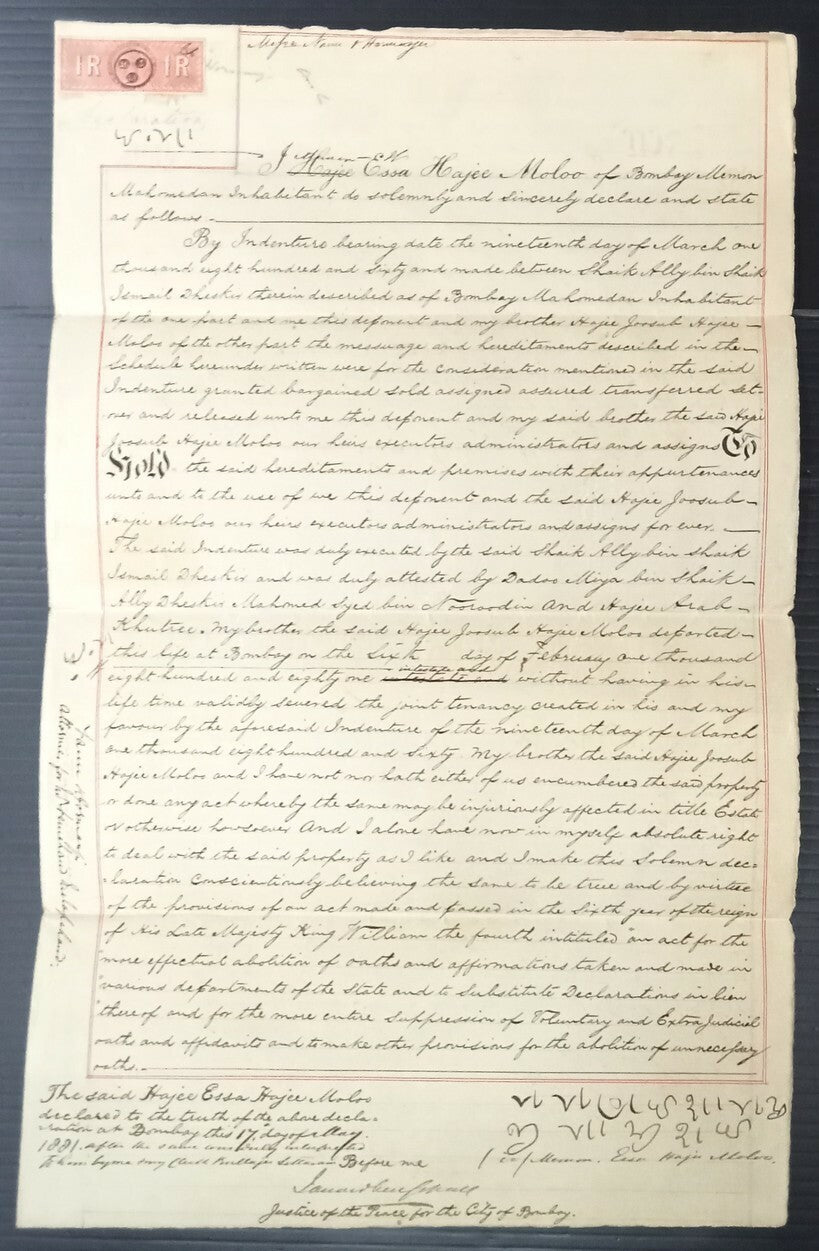 1R 1R
I Memon Essa Hajee Moloo of Bombay Memon
Mahomedan Inhabitant do solemnly and sincerely declare and state
as follows.
By Indenture bearing date the nineteenth day of March one
thousand eight hundred and sixty and made between Shaik Ally bin Shaik
Ismail Dheskir therein described as of Bombay Mahomedan Inhabitant
of the one part and me this deponent and my brother Hajee Joosub Hajee
Moloo of the other part the messuage and hereditaments described in the
Schedule hereunder written were for the consideration mentioned in the said
Indenture granted bargained sold assigned assured transferred set-
over and released unto me this deponent and my said brother the said Hajee
Joosub Hajee Moloo our heirs executors administrators and assigns To
Hold the said hereditaments and premises with their appurtenances
unto and to the use of we this deponent and the said Hajee Joosub
Hajee Moloo our heirs executors administrators and assigns for ever.
The said Indenture was duly executed by the said Shaik Ally bin Shaik
Ismail Dheskir and was duly attested by Dadoo Miya bin Shaik
Ally Dheskir Mahomed Syed bin Nooroodin And Hajee Arab
Khutree. My brother the said Hajee Joosub Hajee Moloo departed
this life at Bombay on the Sixth day of February one thousand
eight hundred and eighty one intestate and without having in his
life time validly severed the joint tenancy created in his and my
favour by the aforesaid Indenture of the nineteenth day of March
one thousand eight hundred and Sixty. My brother the said Hajee Joosub
Hajee Moloo and I have not nor hath either of us encumbered the said property
or done any act whereby the same may be injuriously affected in title Estate
or otherwise howsoever And I alone have now in myself absolute right
to deal with the said property as I like and I make this Solemn dec-
laration conscientiously believing the same to be true and by virtue
of the provisions of an act made and passed in the Sixth year of the reign
of His Late Majesty King William the fourth intituled "an act for the
"more effectual abolition of oaths and affirmations taken and made in
"various departments of the State and to Substitute Declarations in lieu
"thereof and for the more entire Suppression of Voluntary and Extra Judicial
oaths and affidavits and to make other provisions for the abolition of unnecessary
oaths.
The said Hajee Essa Hajee Moloo
declared to the truth of the above decla-
ration at Bombay this 17 day of May
1881 after the same was duly interpreted
to him by me Before me
Memon Essa Hajee Moloo.
Justice of the Peace for the City of Bombay.
Attorney for